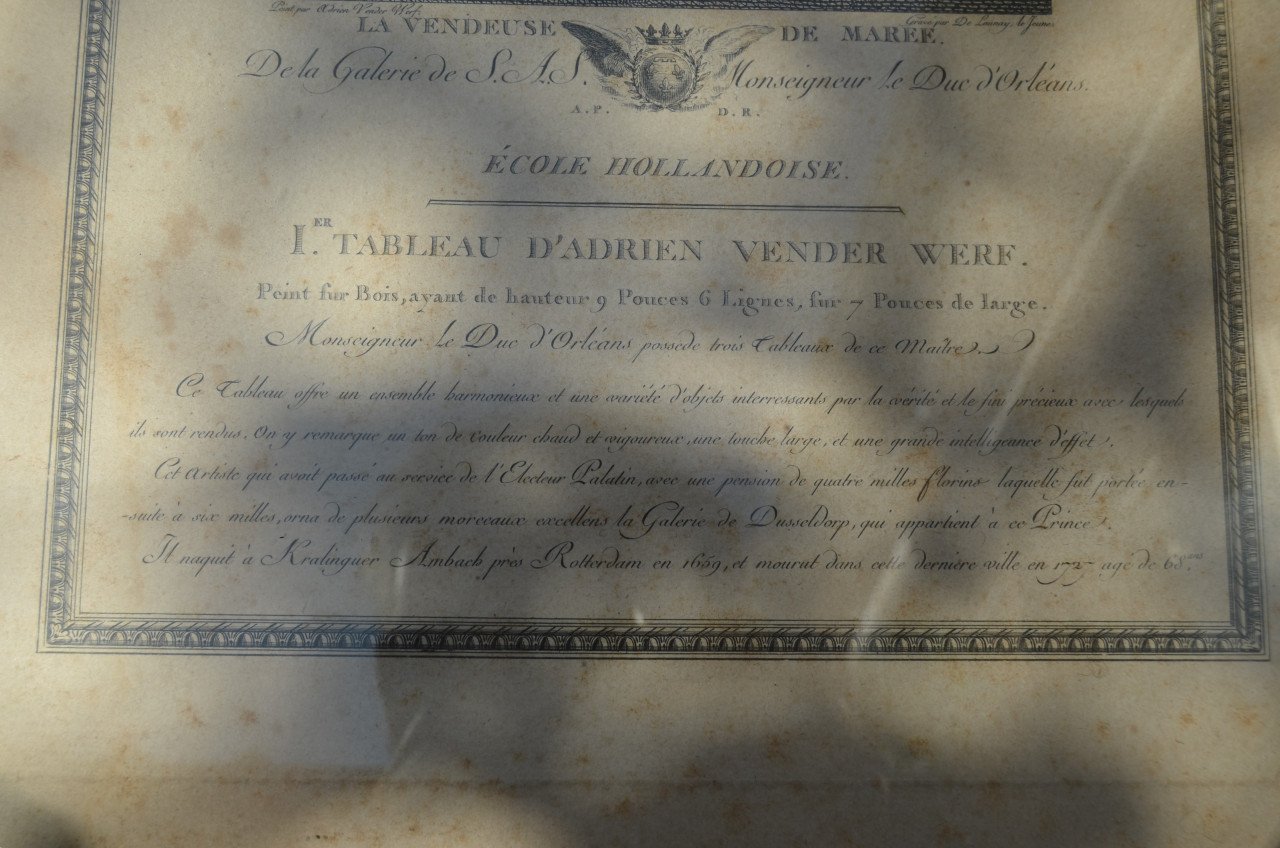 Peint par Adrien Vender Werf.
Gravé par De Launay, le Jeune.
LA VENDEUSE DE MARÉE.
De la Galerie de S. A. S. Monseigneur le Duc d'Orléans.
A. P. D. R.
ÉCOLE HOLLANDOISE.
I.ER TABLEAU D'ADRIEN VENDER WERF.
Peint sur Bois, ayant de hauteur 9 Pouces 6 Lignes, sur 7 Pouces de large.
Monseigneur le Duc d'Orléans possede trois Tableaux de ce Maître.
Ce Tableau offre un ensemble harmonieux et une variété d'objets interressants par la vérité et le fini précieux avec lesquels
ils sont rendus. On y remarque un ton de couleur chaud et vigoureux, une touche large, et une grande intelligeance d'effet.
Cet Artiste qui avoit passé au service de l'Electeur Palatin, avec une pension de quatre milles florins laquelle fut portée en-
-suite à six milles, orna de plusieurs morceaux excellens la Galerie de Dusseldorp, qui appartient à ce Prince.
Il naquit à Kralinguer Ambach près Rotterdam en 1659, et mourut dans cette dernière ville en 1727 agé de 68 ans.